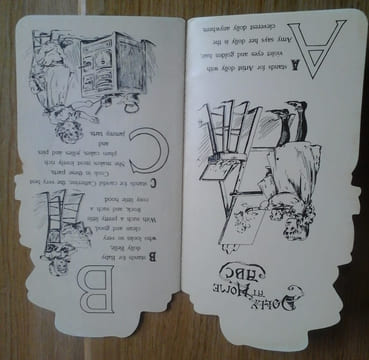 DOLLY
AT HOME
ABC
A
A stands for Artist dolly with
violet eyes and golden hair,
Amy says her dolly is the
cleverest dolly anywhere.
B
B stands for Baby
dolly Belle,
who looks so very
clean and good,
With such a pretty little
frock, and such a
cosy little hood.
C
C stands for careful Catherine, the very best
Cook in these parts,
She makes most lovely rich
plum cakes, jellies and pies
and
jammy tarts.